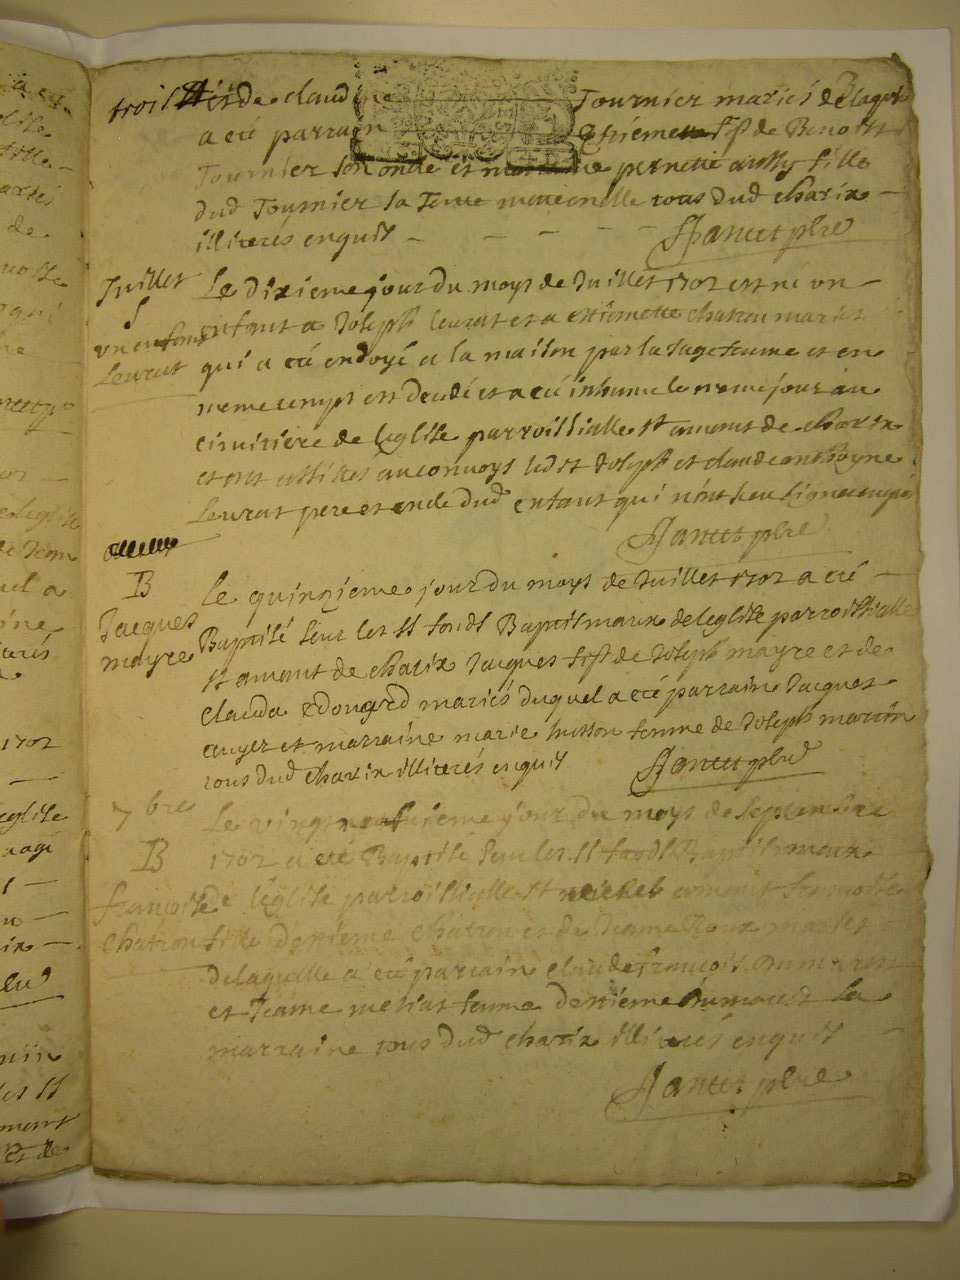 trois et de claudine Tournier mariés de laquelle
a eté parrain Estiennne fs de Benoist
Tournier son oncle et marraine pernette aussy fille
dud Tournier sa Tente maternelle tous dud charix
illiterés enquis Jfancet pbre
Juillet
S
un enfant
Leurat
Le dixieme jour du moys de Juillet 1702 est né un
enfant a Joseph leurat et a estiennette chatron mariés
qui a eté endoyé a la maison par la sage femme et en
meme temps est decedé et a eté inhumé le meme jour au
cimitiere de leglise parroissialle st amant de charix
et ont assistés au convoys led st Joseph et claude anthoyne
Leurat pere et oncle dud enfant qui n'ont sceu signer enquis
Jfancet pbre
B
Jacques
mayre
Le quinzieme jour du moys de Juillet 1702 a eté
Baptisé sur les ss fonds Baptismaux de leglise parroissialle
st amant de charix Jacques fs de Joseph mayre et de
Clauda Edouard mariés duquel a eté parrain Jacques
auger et marraine marie husson femme de Joseph marion
tous dud charix illiterés enquis Jfancet pbre
7bre
B
françoise
Chatron
Le vingt neufvieme jour du moys de septembre
1702 a eté Baptisé sur les ss fonds Baptismaux
de l'eglise parroissialle st amant françoise
fille d'estienne Chatron et de Jeanne Roux mariés
de laquelle a eté parrain claude françois Dumarest
et Jeanne mermet femme d'estienne Dumarest la
marraine tous dud charix illiterés enquis
Jfancet pbre